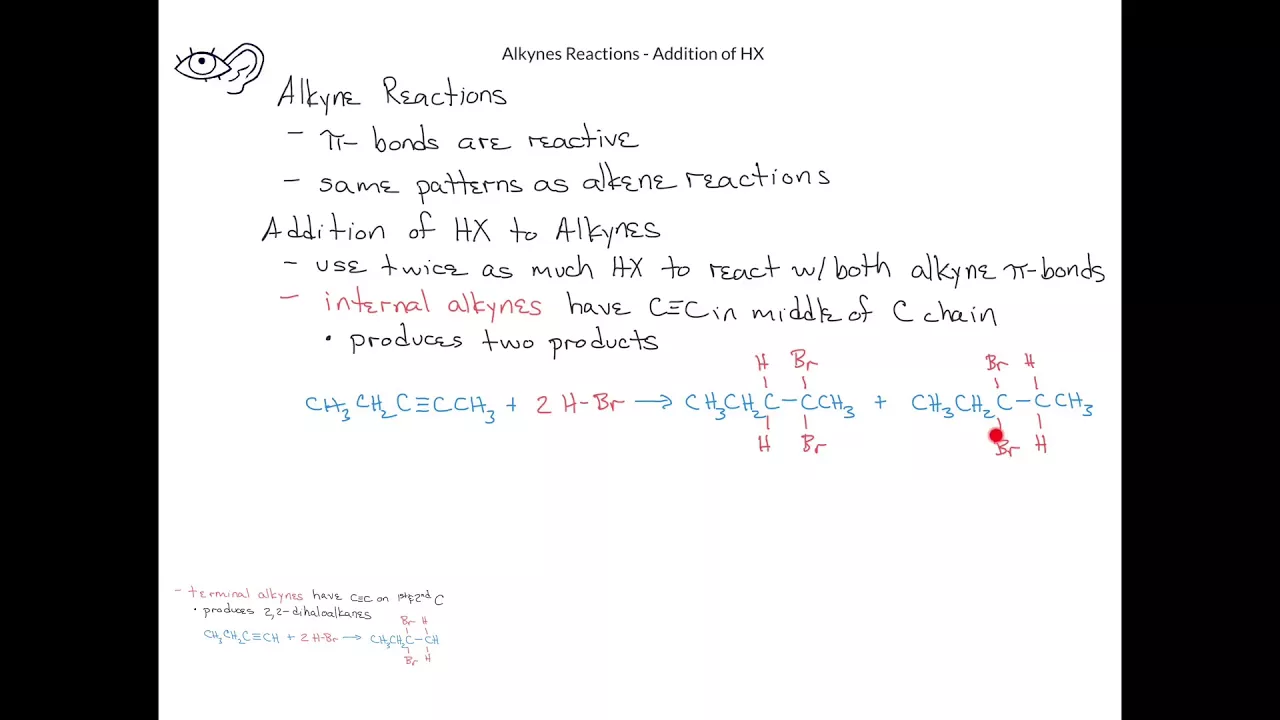 Alkynes Reactions - Addition of HX
Alkyne Reactions
- π- bonds are reactive
- same patterns as alkene reactions
Addition of HX to Alkynes
- use twice as much HX to react w/ both alkyne π-bonds
- internal alkynes have C≡C in middle of C chain
• produces two products
H Br Br H
CH₃CH₂C≡CCH₃ + 2 H-Br → CH₃CH₂C-CCH₃ + CH₃CH₂C-CCH₃
H Br Br H
- terminal alkynes have C≡C on 1st & 2nd C
• produces 2,2-dihaloalkanes
Br H
CH₃CH₂C≡CH + 2 H-Br → CH₃CH₂C-CH
Br H